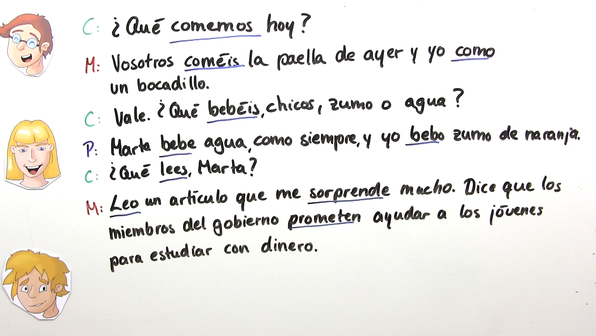 C: ¿Qué comemos hoy?
M: Vosotros coméis la paella de ayer y yo como
un bocadillo.
C: Vale. ¿Qué bebéis, chicos, zumo o agua?
P: Marta bebe agua, como siempre, y yo bebo zumo de naranja.
C: ¿Qué lees, Marta?
M: Leo un artículo que me sorprende mucho. Dice que los
miembros del gobierno prometen ayudar a los jóvenes
para estudiar con dinero.